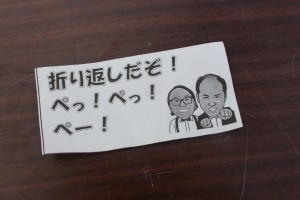 折り返しだぞ！
ぺっ！ぺっ！
ぺー！